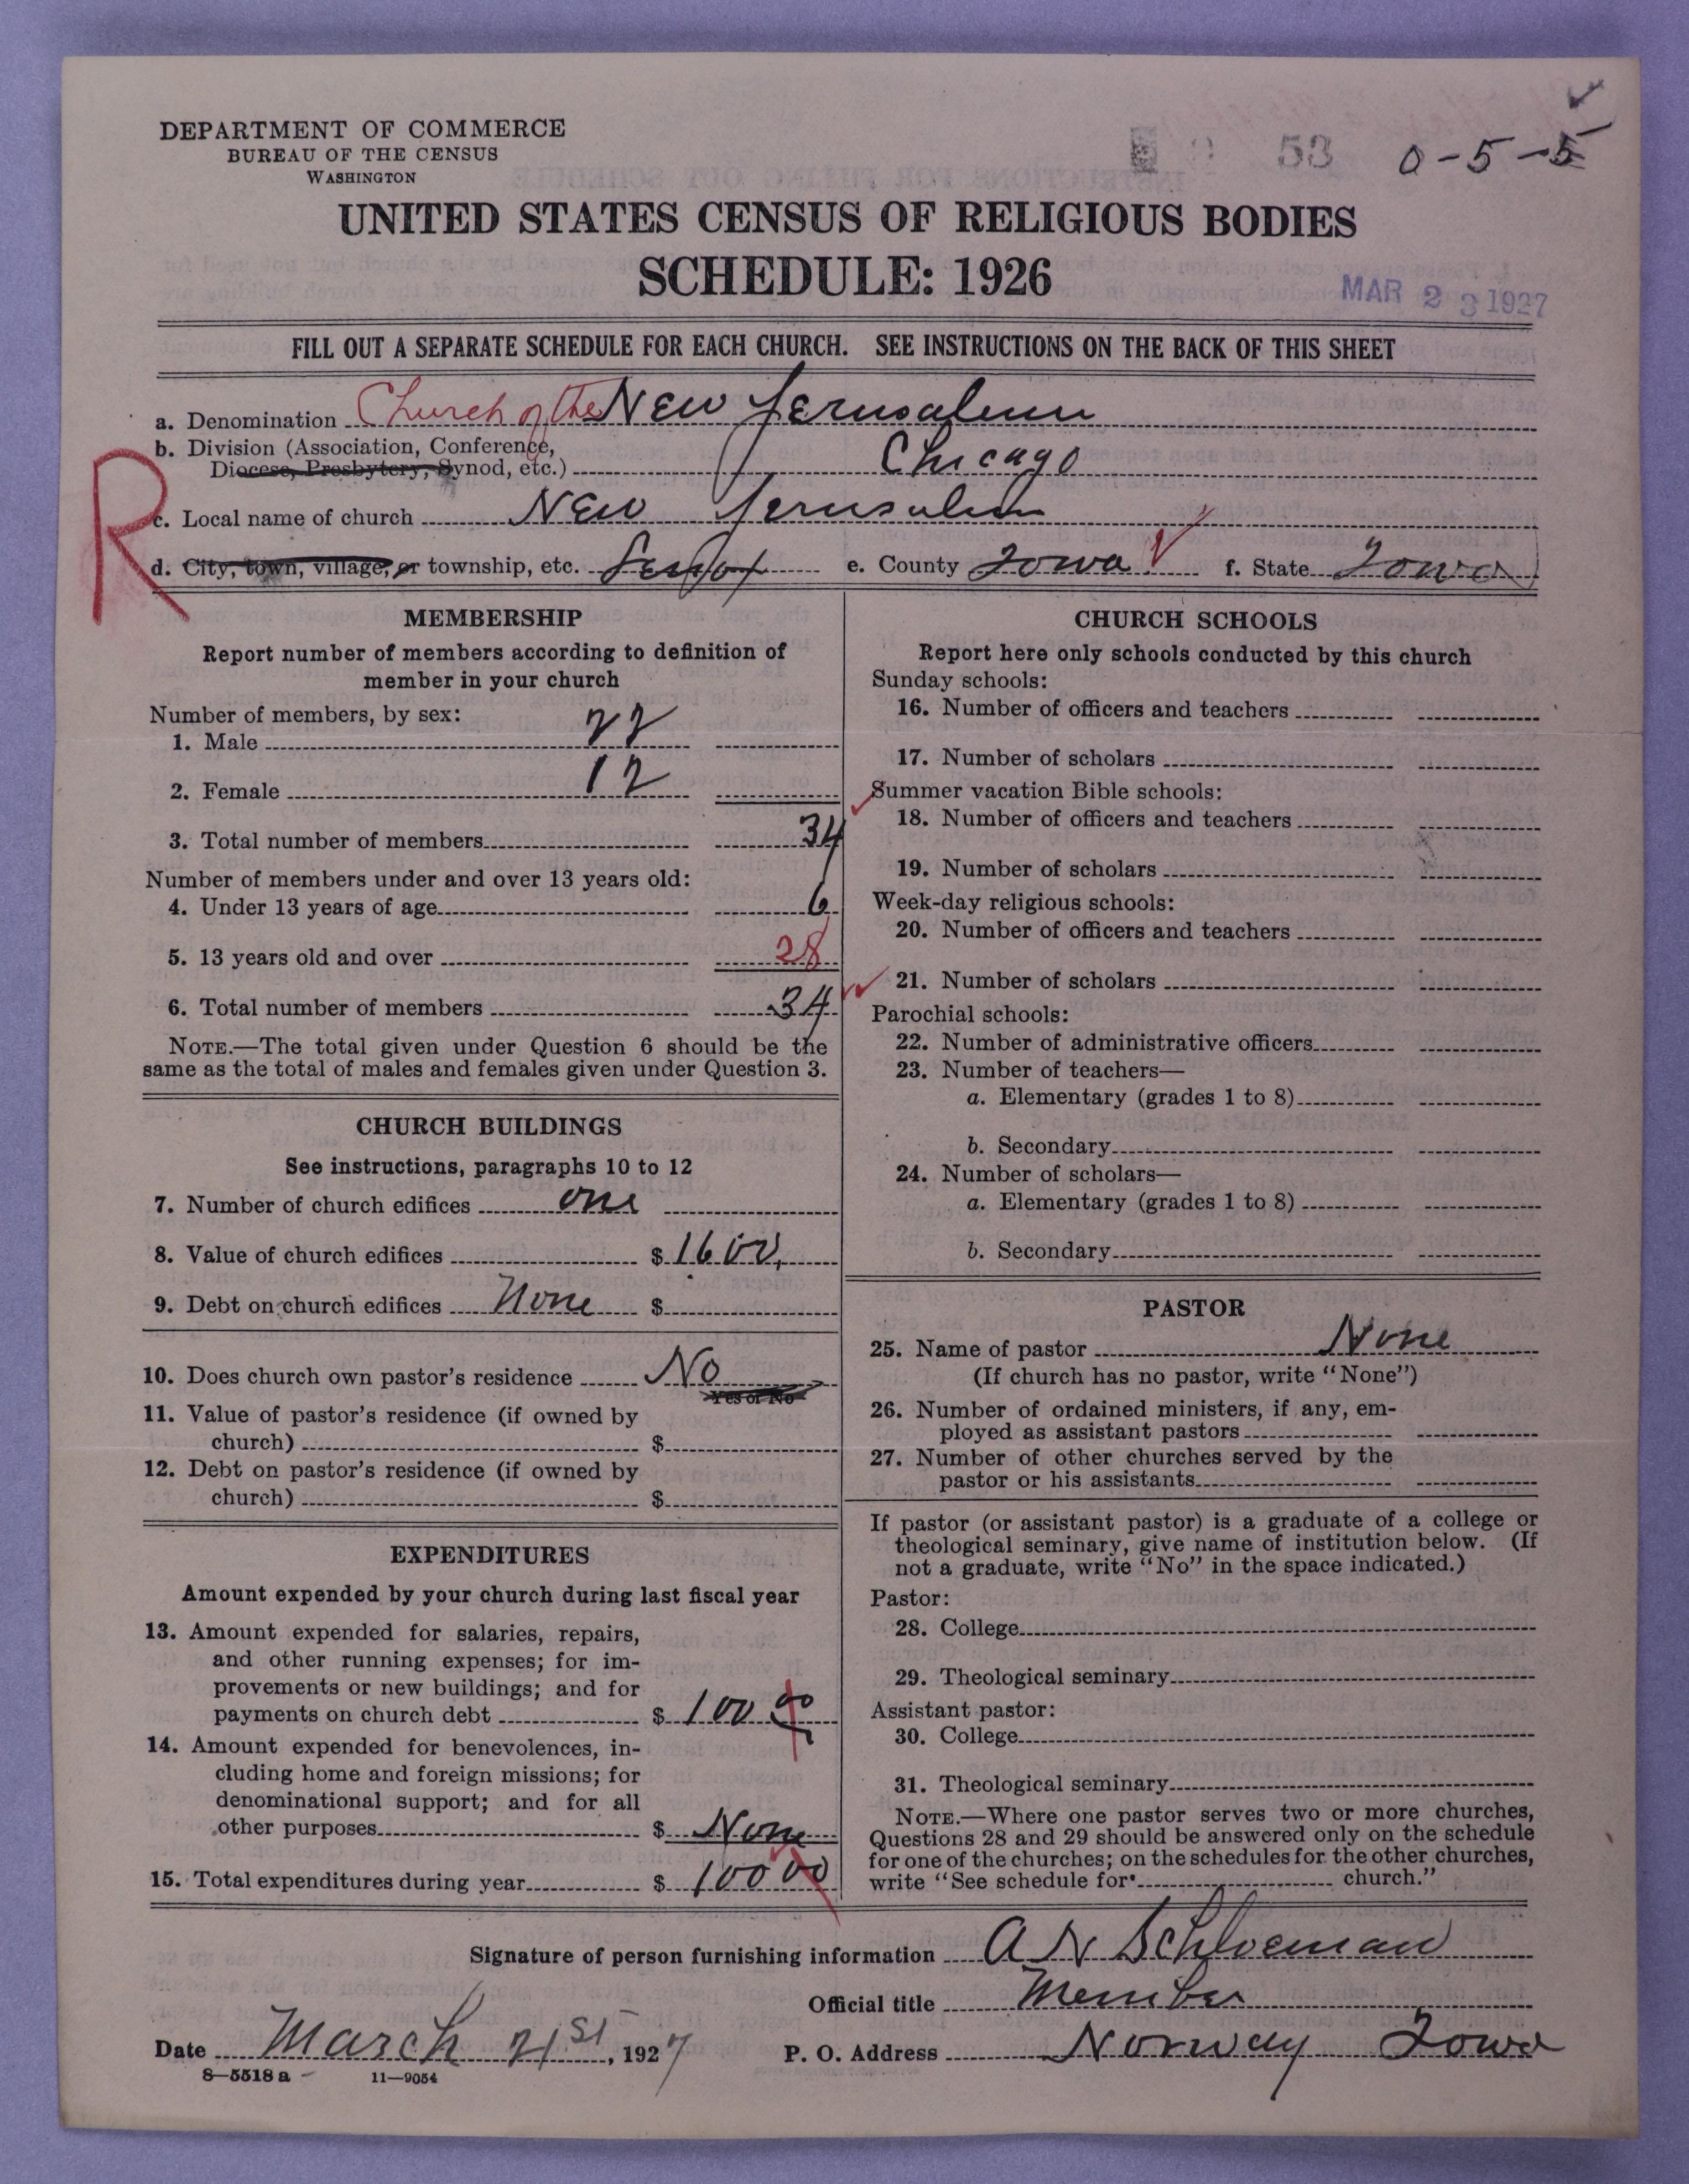 DEPARTMENT OF COMMERCE
BUREAU OF THE CENSUS
WASHINGTON
53 0-5-5
UNITED STATES CENSUS OF RELIGIOUS BODIES
SCHEDULE: 1926
MAR 23 1927
FILL OUT A SEPARATE SCHEDULE FOR EACH CHURCH. SEE INSTRUCTIONS ON THE BACK OF THIS SHEET
a. Denomination Church of the New Jerusalem
b. Division (Association, Conference,
Diocese, Presbytery, Synod, etc.) Chicago
R
c. Local name of church New Jerusalem
d. City, town, village, or township, etc. Lenox e. County Iowa f. State Iowa
MEMBERSHIP
Report number of members according to definition of
member in your church
Number of members, by sex:
1. Male 22
2. Female 12
3. Total number of members 34
Number of members under and over 13 years old:
4. Under 13 years of age 6
5. 13 years old and over 28
6. Total number of members 34
NOTE.—The total given under Question 6 should be the
same as the total of males and females given under Question 3.
CHURCH BUILDINGS
See instructions, paragraphs 10 to 12
7. Number of church edifices one
8. Value of church edifices $ 1600.
9. Debt on church edifices None $
10. Does church own pastor's residence No
Yes or No
11. Value of pastor's residence (if owned by
church) $
12. Debt on pastor's residence (if owned by
church) $
EXPENDITURES
Amount expended by your church during last fiscal year
13. Amount expended for salaries, repairs,
and other running expenses; for im-
provements or new buildings; and for
payments on church debt $ 100 00
14. Amount expended for benevolences, in-
cluding home and foreign missions; for
denominational support; and for all
other purposes $ None
15. Total expenditures during year $ 100 00
CHURCH SCHOOLS
Report here only schools conducted by this church
Sunday schools:
16. Number of officers and teachers
17. Number of scholars
Summer vacation Bible schools:
18. Number of officers and teachers
19. Number of scholars
Week-day religious schools:
20. Number of officers and teachers
21. Number of scholars
Parochial schools:
22. Number of administrative officers
23. Number of teachers—
a. Elementary (grades 1 to 8)
b. Secondary
24. Number of scholars—
a. Elementary (grades 1 to 8)
b. Secondary
PASTOR
25. Name of pastor None
(If church has no pastor, write "None")
26. Number of ordained ministers, if any, em-
ployed as assistant pastors
27. Number of other churches served by the
pastor or his assistants
If pastor (or assistant pastor) is a graduate of a college or
theological seminary, give name of institution below. (If
not a graduate, write "No" in the space indicated.)
Pastor:
28. College
29. Theological seminary
Assistant pastor:
30. College
31. Theological seminary
NOTE.—Where one pastor serves two or more churches,
Questions 28 and 29 should be answered only on the schedule
for one of the churches; on the schedules for the other churches,
write "See schedule for church."
Signature of person furnishing information A N Schloeman
Official title Member
Date March 21st, 1927 P. O. Address Norway Iowa
8—5518 a 11—9054